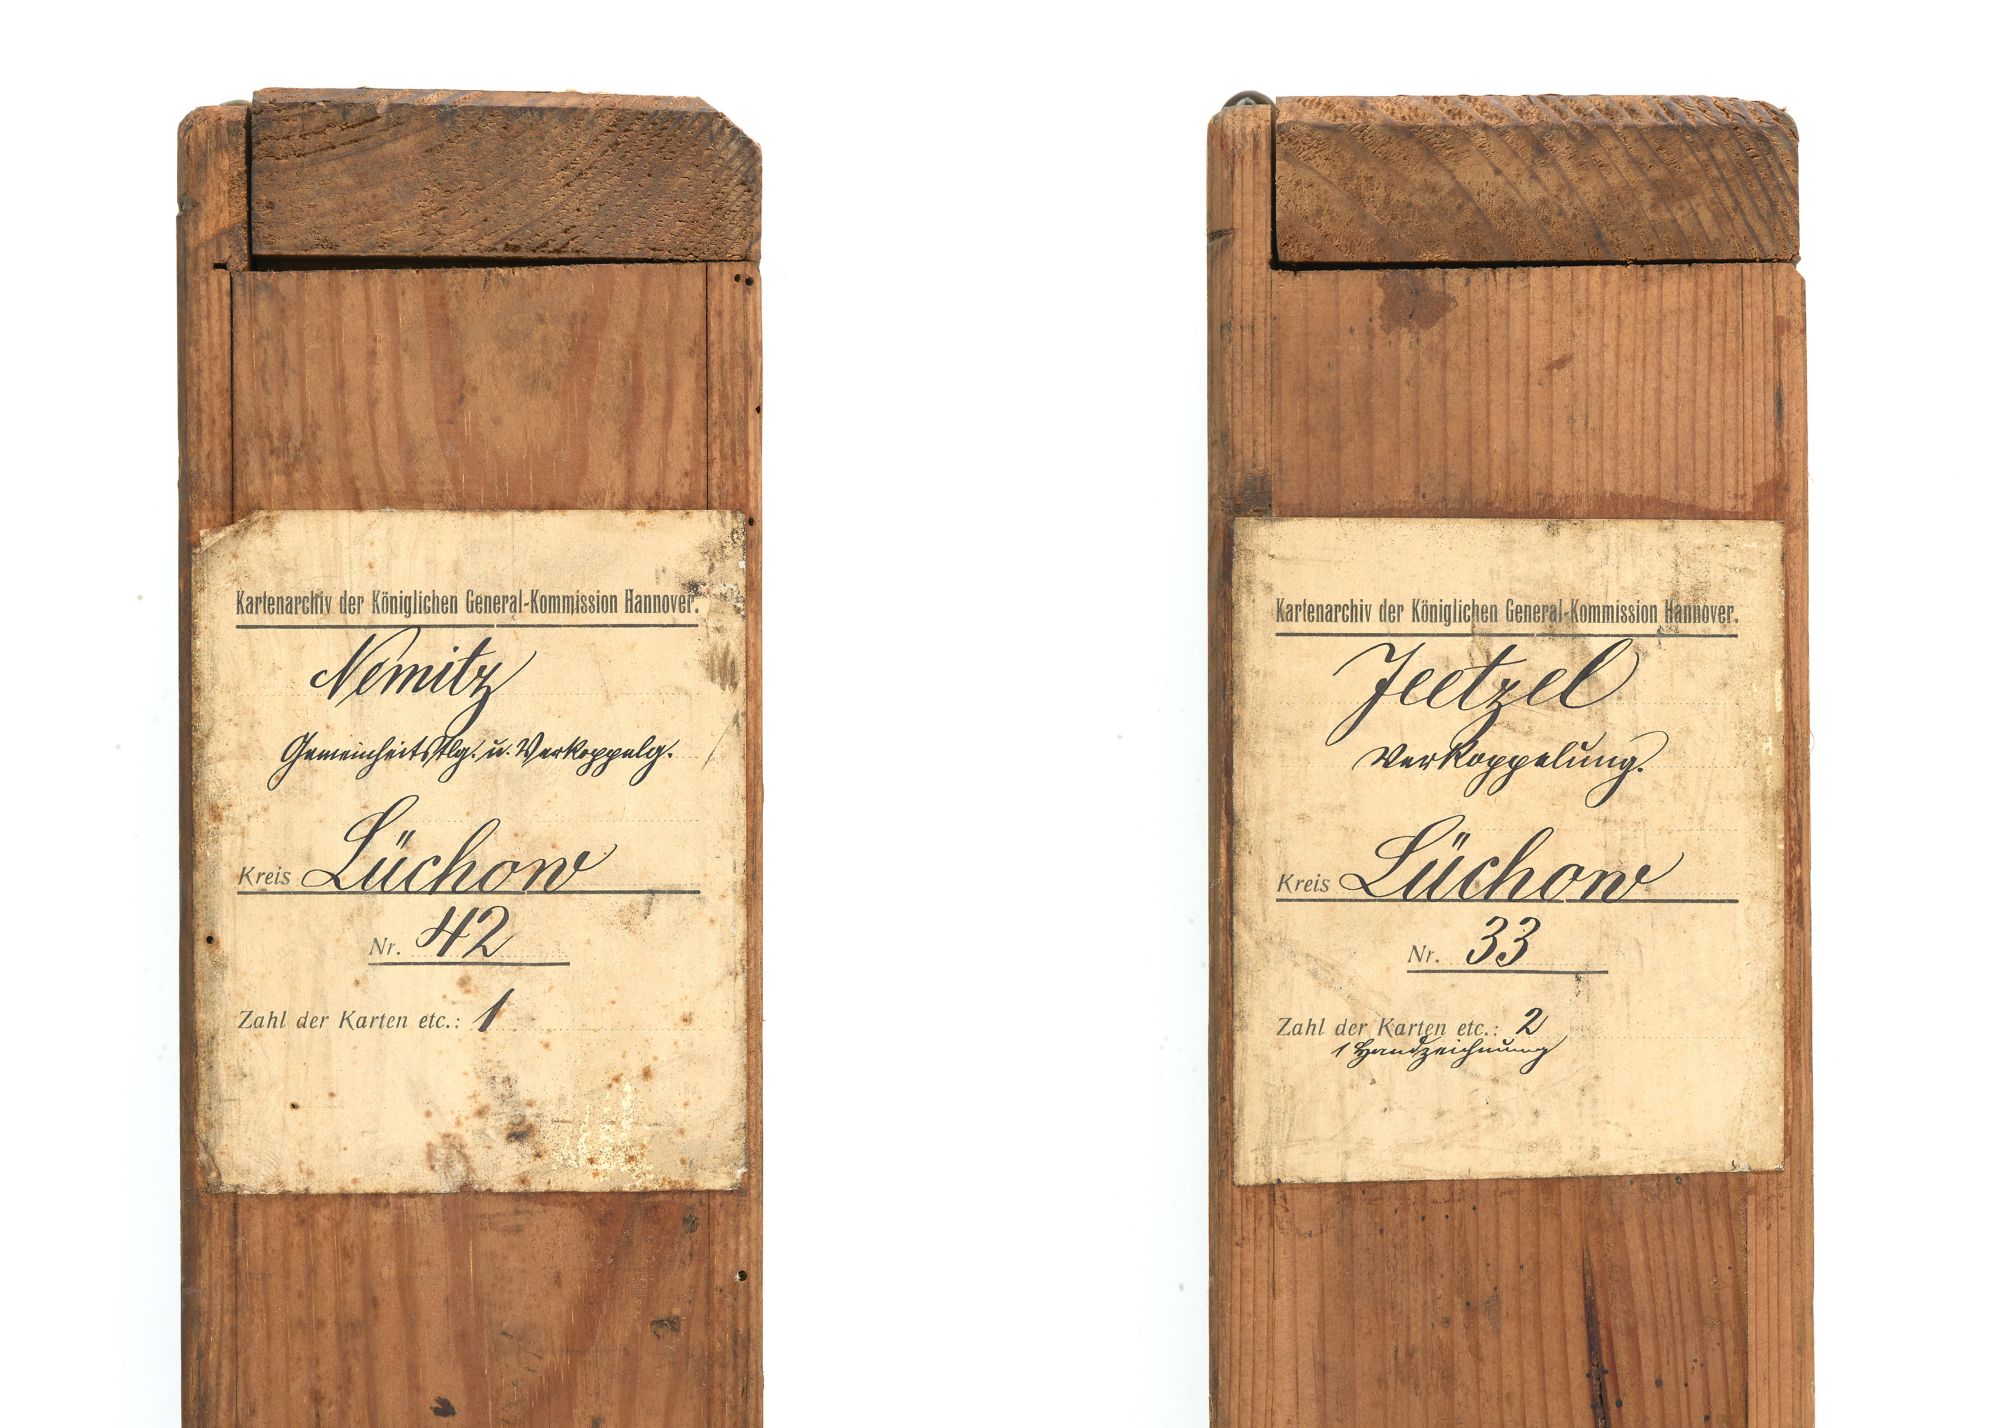 Kartenarchiv der Königlichen General-Kommission Hannover.
Nemitz
Gemeinheitstlg. u. Verkoppelg.
Kreis Lüchow
Nr. 42
Zahl der Karten etc.: 1
Kartenarchiv der Königlichen General-Kommission Hannover.
Jeetzel
Verkoppelung.
Kreis Lüchow
Nr. 33
Zahl der Karten etc.: 2
1 Handzeichnung